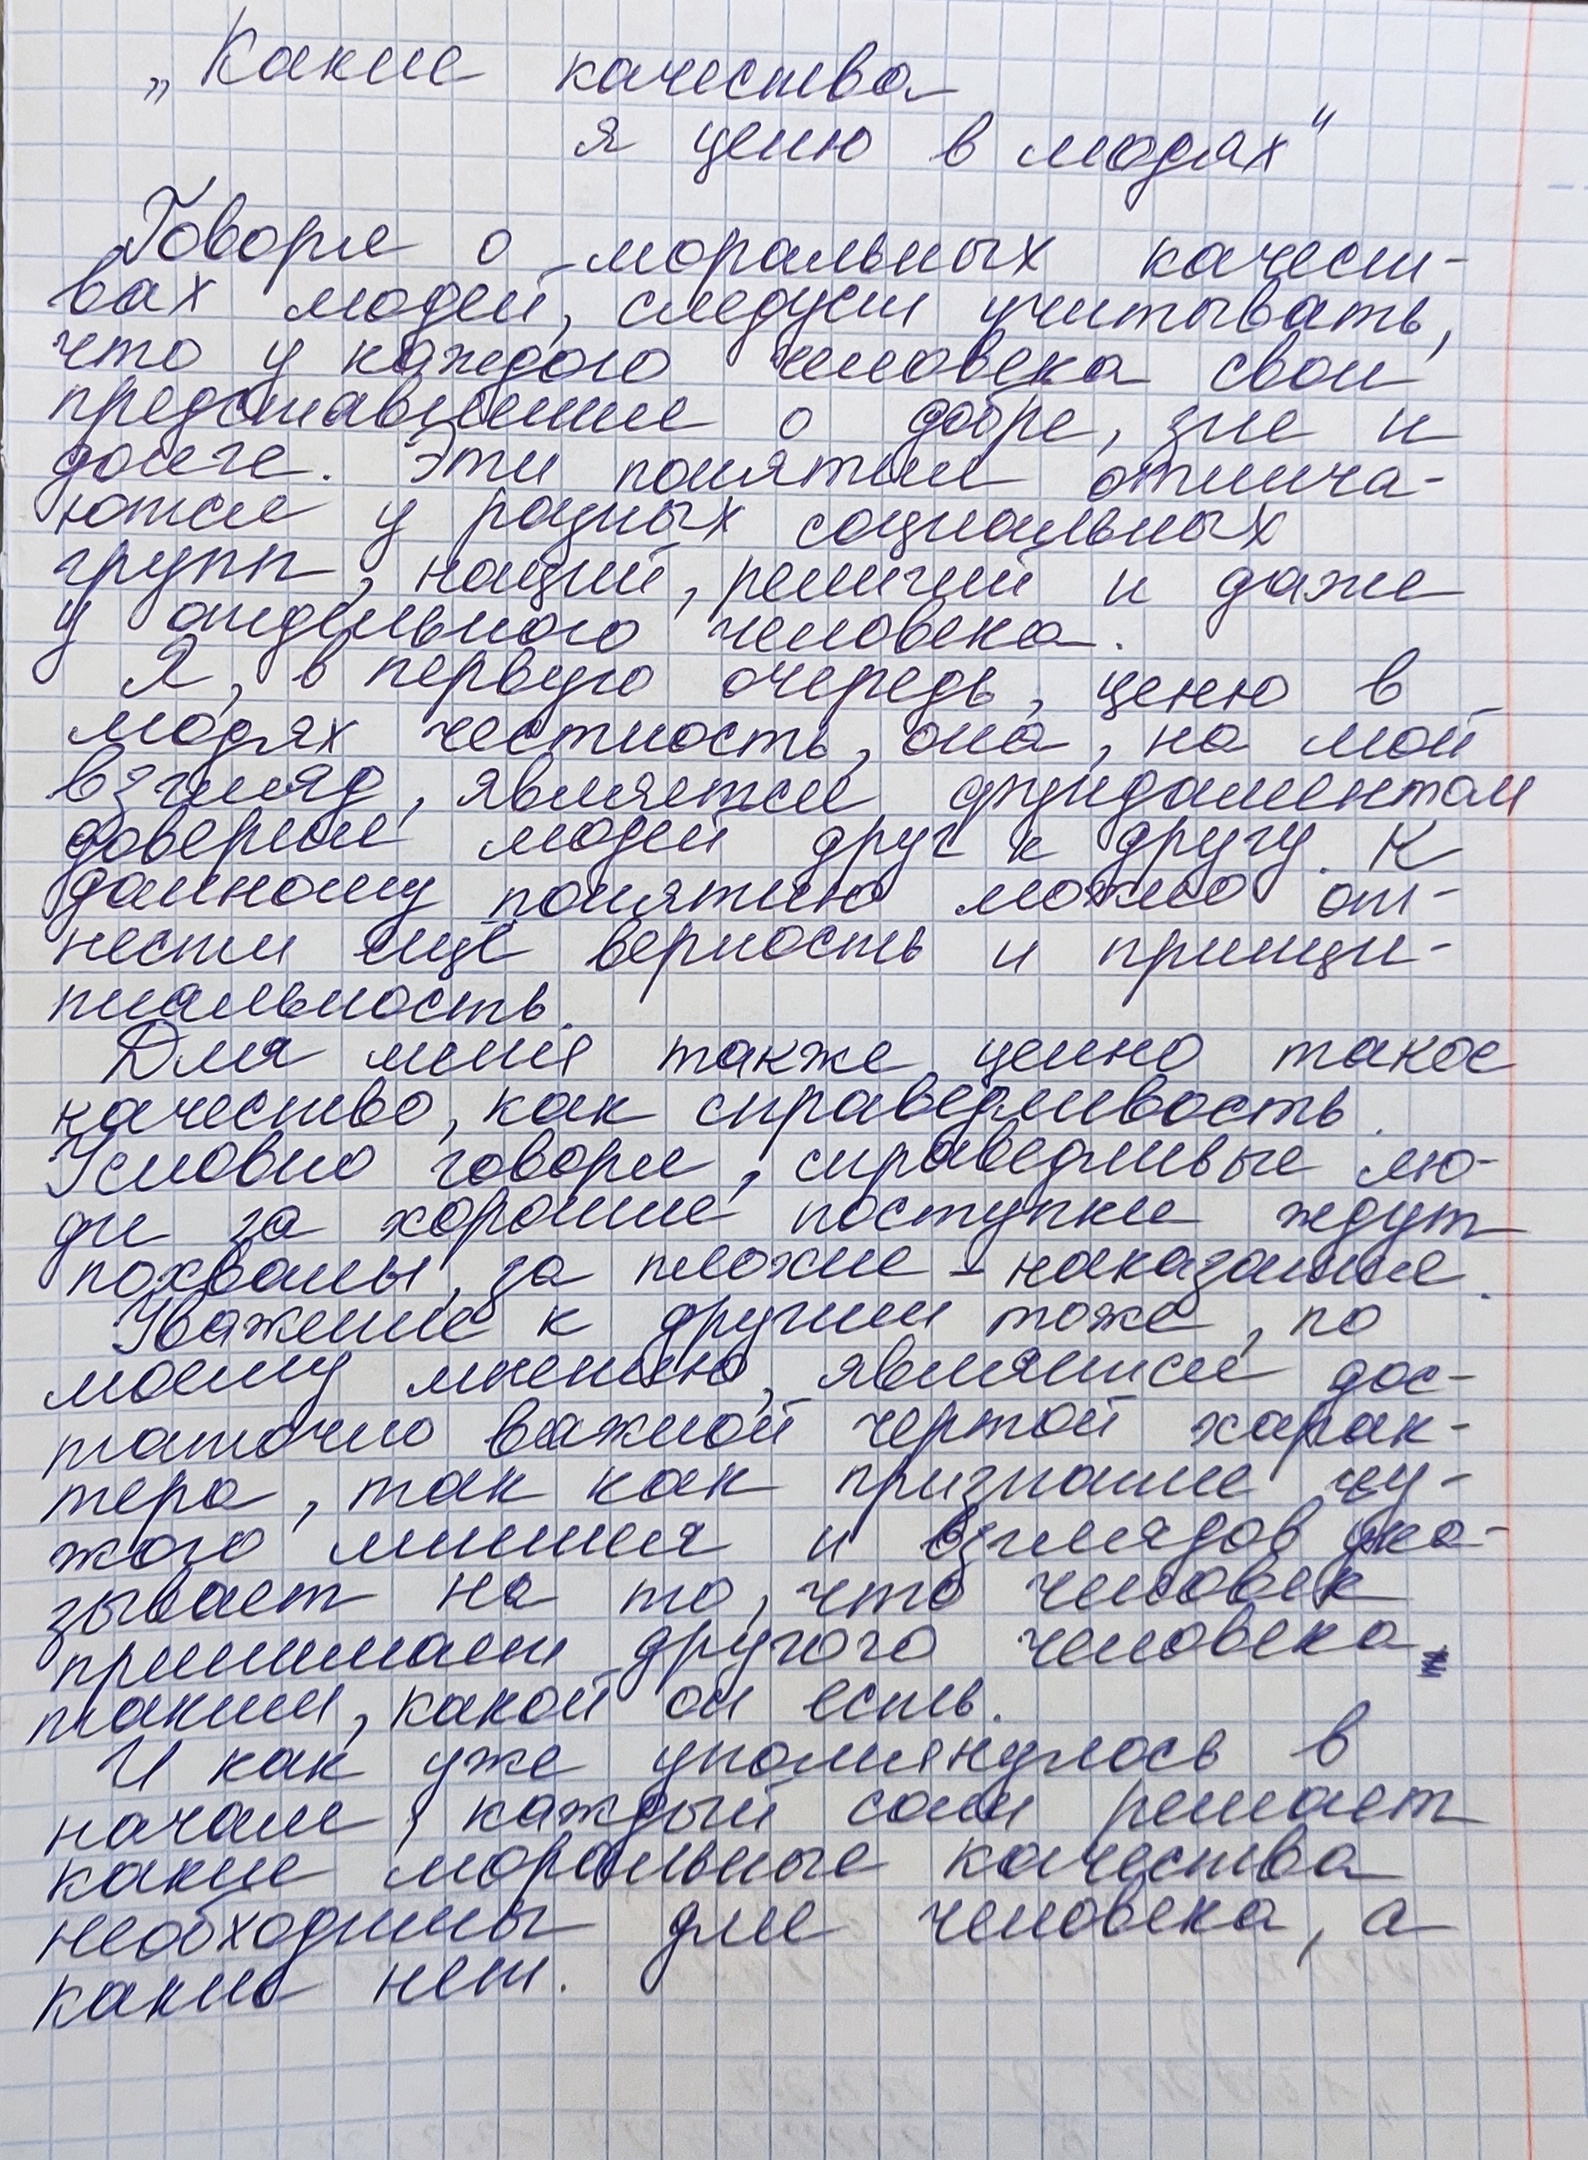 „Какие качества
я ценю в людях"
Говоря о моральных качест-
вах людей, следует учитывать,
что у каждого человека свои
представление о добре, зле и
долге. Эти понятия отлича-
ются у разных социальных
групп, наций, религий и даже
у отдельного человека.
Я, в первую очередь, ценю в
людях честность, она, на мой
взгляд, является фундаментом
доверия людей друг к другу. К
данному понятию можно от-
нести ещё верность и принци-
пиальность.
Для меня также ценно такое
качество, как справедливость.
Условно говоря, справедливые лю-
ди за хорошие поступки ждут
похвалы, за плохие - наказание.
Уважение к другим тоже, по
моему мнению, является дос-
таточно важной чертой харак-
тера, так как признание чу-
жого мнения и взглядов ука-
зывает на то, что человек
принимает другого человека
таким, какой он есть.
И как уже упомянулось в
начале, каждый сам решает
какие моральные качества
необходимы для человека, а
какие нет.